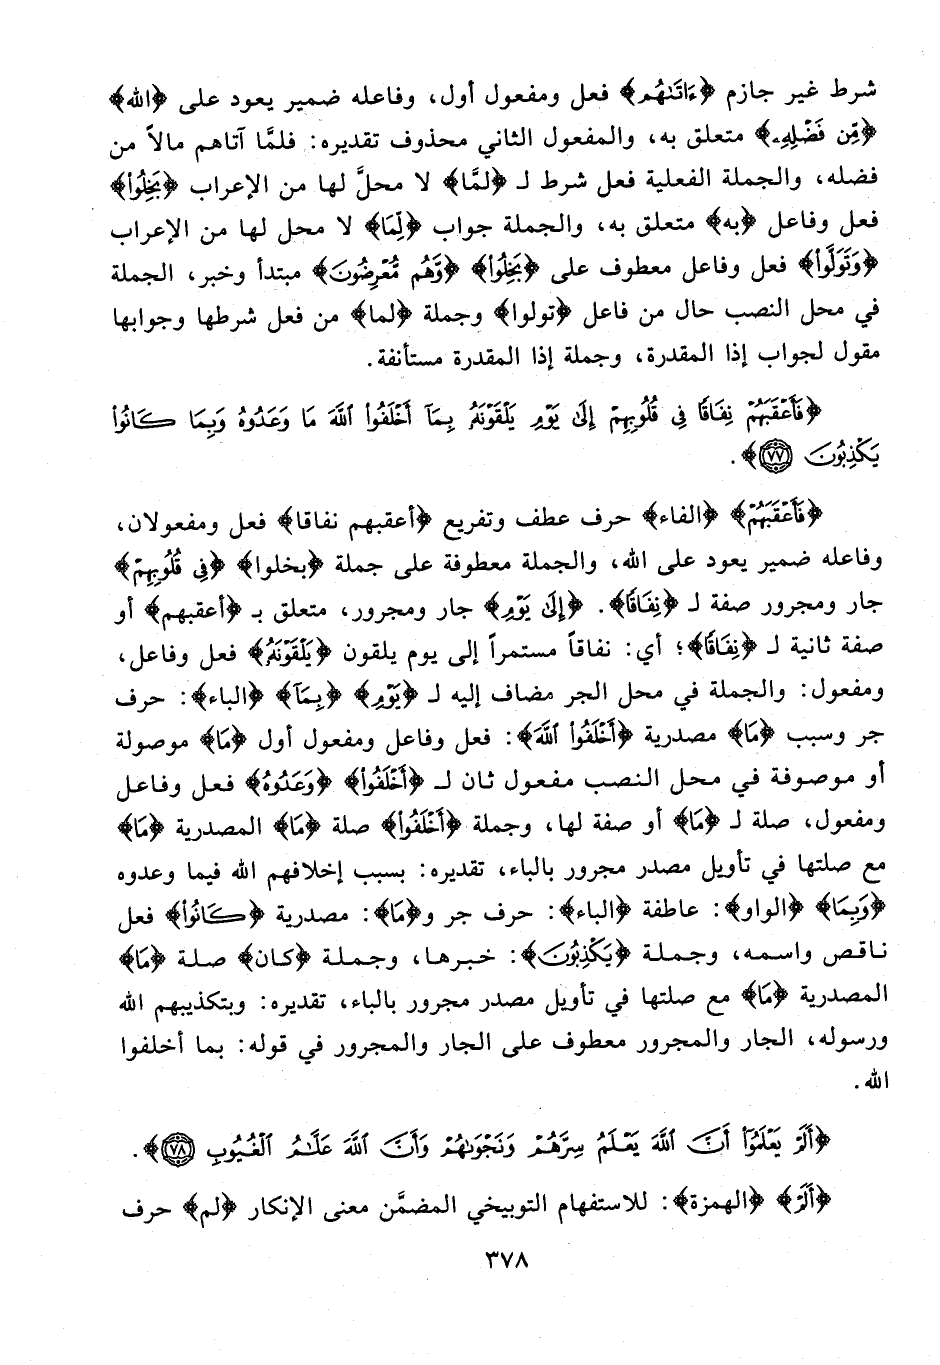 شرط غير جازم ﴿ءَاتَىٰهُم﴾ فعل ومفعول أول، وفاعله ضمير يعود على ﴿الله﴾
﴿مِّن فَضْلِهِۦ﴾ متعلق به، والمفعول الثاني محذوف تقديره: فلمَّا آتاهم مالاً من
فضله، والجملة الفعلية فعل شرط لـ ﴿لمَّا﴾ لا محلَّ لها من الإعراب ﴿بَخِلُوا۟﴾
فعل وفاعل ﴿به﴾ متعلق به، والجملة جواب ﴿لِمَا﴾ لا محل لها من الإعراب
﴿وَتَوَلَّوا۟﴾ فعل وفاعل معطوف على ﴿بَخِلُوا۟﴾ ﴿وَّهُم مُّعْرِضُونَ﴾ مبتدأ وخبر، الجملة
في محل النصب حال من فاعل ﴿تولوا﴾ وجملة ﴿لما﴾ من فعل شرطها وجوابها
مقول لجواب إذا المقدرة، وجملة إذا المقدرة مستأنفة.
﴿فَأَعْقَبَهُمْ نِفَاقًا فِى قُلُوبِهِمْ إِلَىٰ يَوْمِ يَلْقَوْنَهُۥ بِمَآ أَخْلَفُوا۟ ٱللَّهَ مَا وَعَدُوهُ وَبِمَا كَانُوا۟
يَكْذِبُونَ ٧٧﴾.
﴿فَأَعْقَبَهُمْ﴾ ﴿الفاء﴾ حرف عطف وتفريع ﴿أعقبهم نفاقا﴾ فعل ومفعولان،
وفاعله ضمير يعود على الله، والجملة معطوفة على جملة ﴿بخلوا﴾ ﴿فِى قُلُوبِهِمْ﴾
جار ومجرور صفة لـ ﴿نِفَاقًا﴾. ﴿إِلَىٰ يَوْمِ﴾ جار ومجرور، متعلق بـ ﴿أعقبهم﴾ أو
صفة ثانية لـ ﴿نِفَاقًا﴾؛ أي: نفاقاً مستمراً إلى يوم يلقون ﴿يَلْقَوْنَهُۥ﴾ فعل وفاعل،
ومفعول: والجملة في محل الجر مضاف إليه لـ ﴿يَوْمِ﴾ ﴿بِمَآ﴾ ﴿الباء﴾: حرف
جر وسبب ﴿مَا﴾ مصدرية ﴿أَخْلَفُوا۟ ٱللَّهَ﴾: فعل وفاعل ومفعول أول ﴿مَا﴾ موصولة
أو موصوفة في محل النصب مفعول ثان لـ ﴿أَخْلَفُوا۟﴾ ﴿وَعَدُوهُ﴾ فعل وفاعل
ومفعول، صلة لـ ﴿مَا﴾ أو صفة لها، وجملة ﴿أَخْلَفُوا۟﴾ صلة ﴿مَا﴾ المصدرية ﴿مَا﴾
مع صلتها في تأويل مصدر مجرور بالباء، تقديره: بسبب إخلافهم الله فيما وعدوه
﴿وَبِمَا﴾ ﴿الواو﴾: عاطفة ﴿الباء﴾: حرف جر و﴿مَا﴾: مصدرية ﴿كَانُوا۟﴾ فعل
ناقص واسمه، وجملة ﴿يَكْذِبُونَ﴾: خبرها، وجملة ﴿كان﴾ صلة ﴿مَا﴾
المصدرية ﴿مَا﴾ مع صلتها في تأويل مصدر مجرور بالباء، تقديره: وبتكذيبهم الله
ورسوله، الجار والمجرور معطوف على الجار والمجرور في قوله: بما أخلفوا
الله.
﴿أَلَمْ يَعْلَمُوٓا۟ أَنَّ ٱللَّهَ يَعْلَمُ سِرَّهُمْ وَنَجْوَىٰهُمْ وَأَنَّ ٱللَّهَ عَلَّـٰمُ ٱلْغُيُوبِ ٧٨﴾.
﴿أَلَمْ﴾ ﴿الهمزة﴾: للاستفهام التوبيخي المضمَّن معنى الإنكار ﴿لم﴾ حرف
٣٧٨